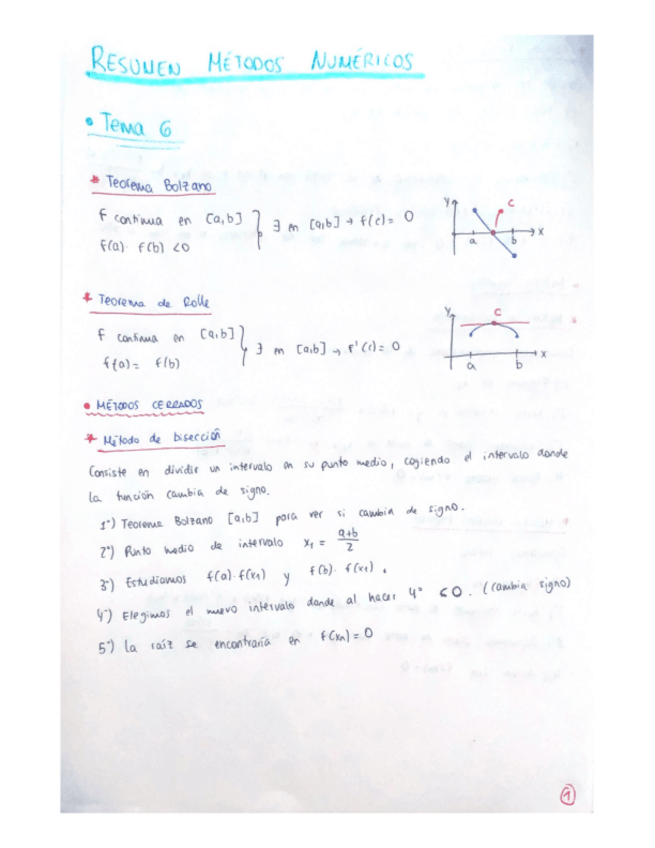 RESUMEN MÉTODOS NUMÉRICOS
• Tema 6
* Teorema Bolzano
F continua en [a,b] } ∃ en [a,b] → f(c) = 0
f(a) · f(b) < 0
y c a b x
* Teorema de Rolle
F continua en [a,b] } ∃ en [a,b] → f'(c) = 0
f(a) = f(b)
y c a b x
• MÉTODOS CERRADOS
* Método de bisección
Consiste en dividir un intervalo en su punto medio, cogiendo el intervalo donde
la función cambia de signo.
1º) Teorema Bolzano [a,b] para ver si cambia de signo.
2º) Punto medio de intervalo x₁ = a+b/2
3º) Estudiamos f(a)·f(x₁) y f(b)·f(x₁).
4º) Elegimos el nuevo intervalo donde al hacer 4º < 0. (cambia signo)
5º) La raíz se encontraría en f(xₙ) = 0
1